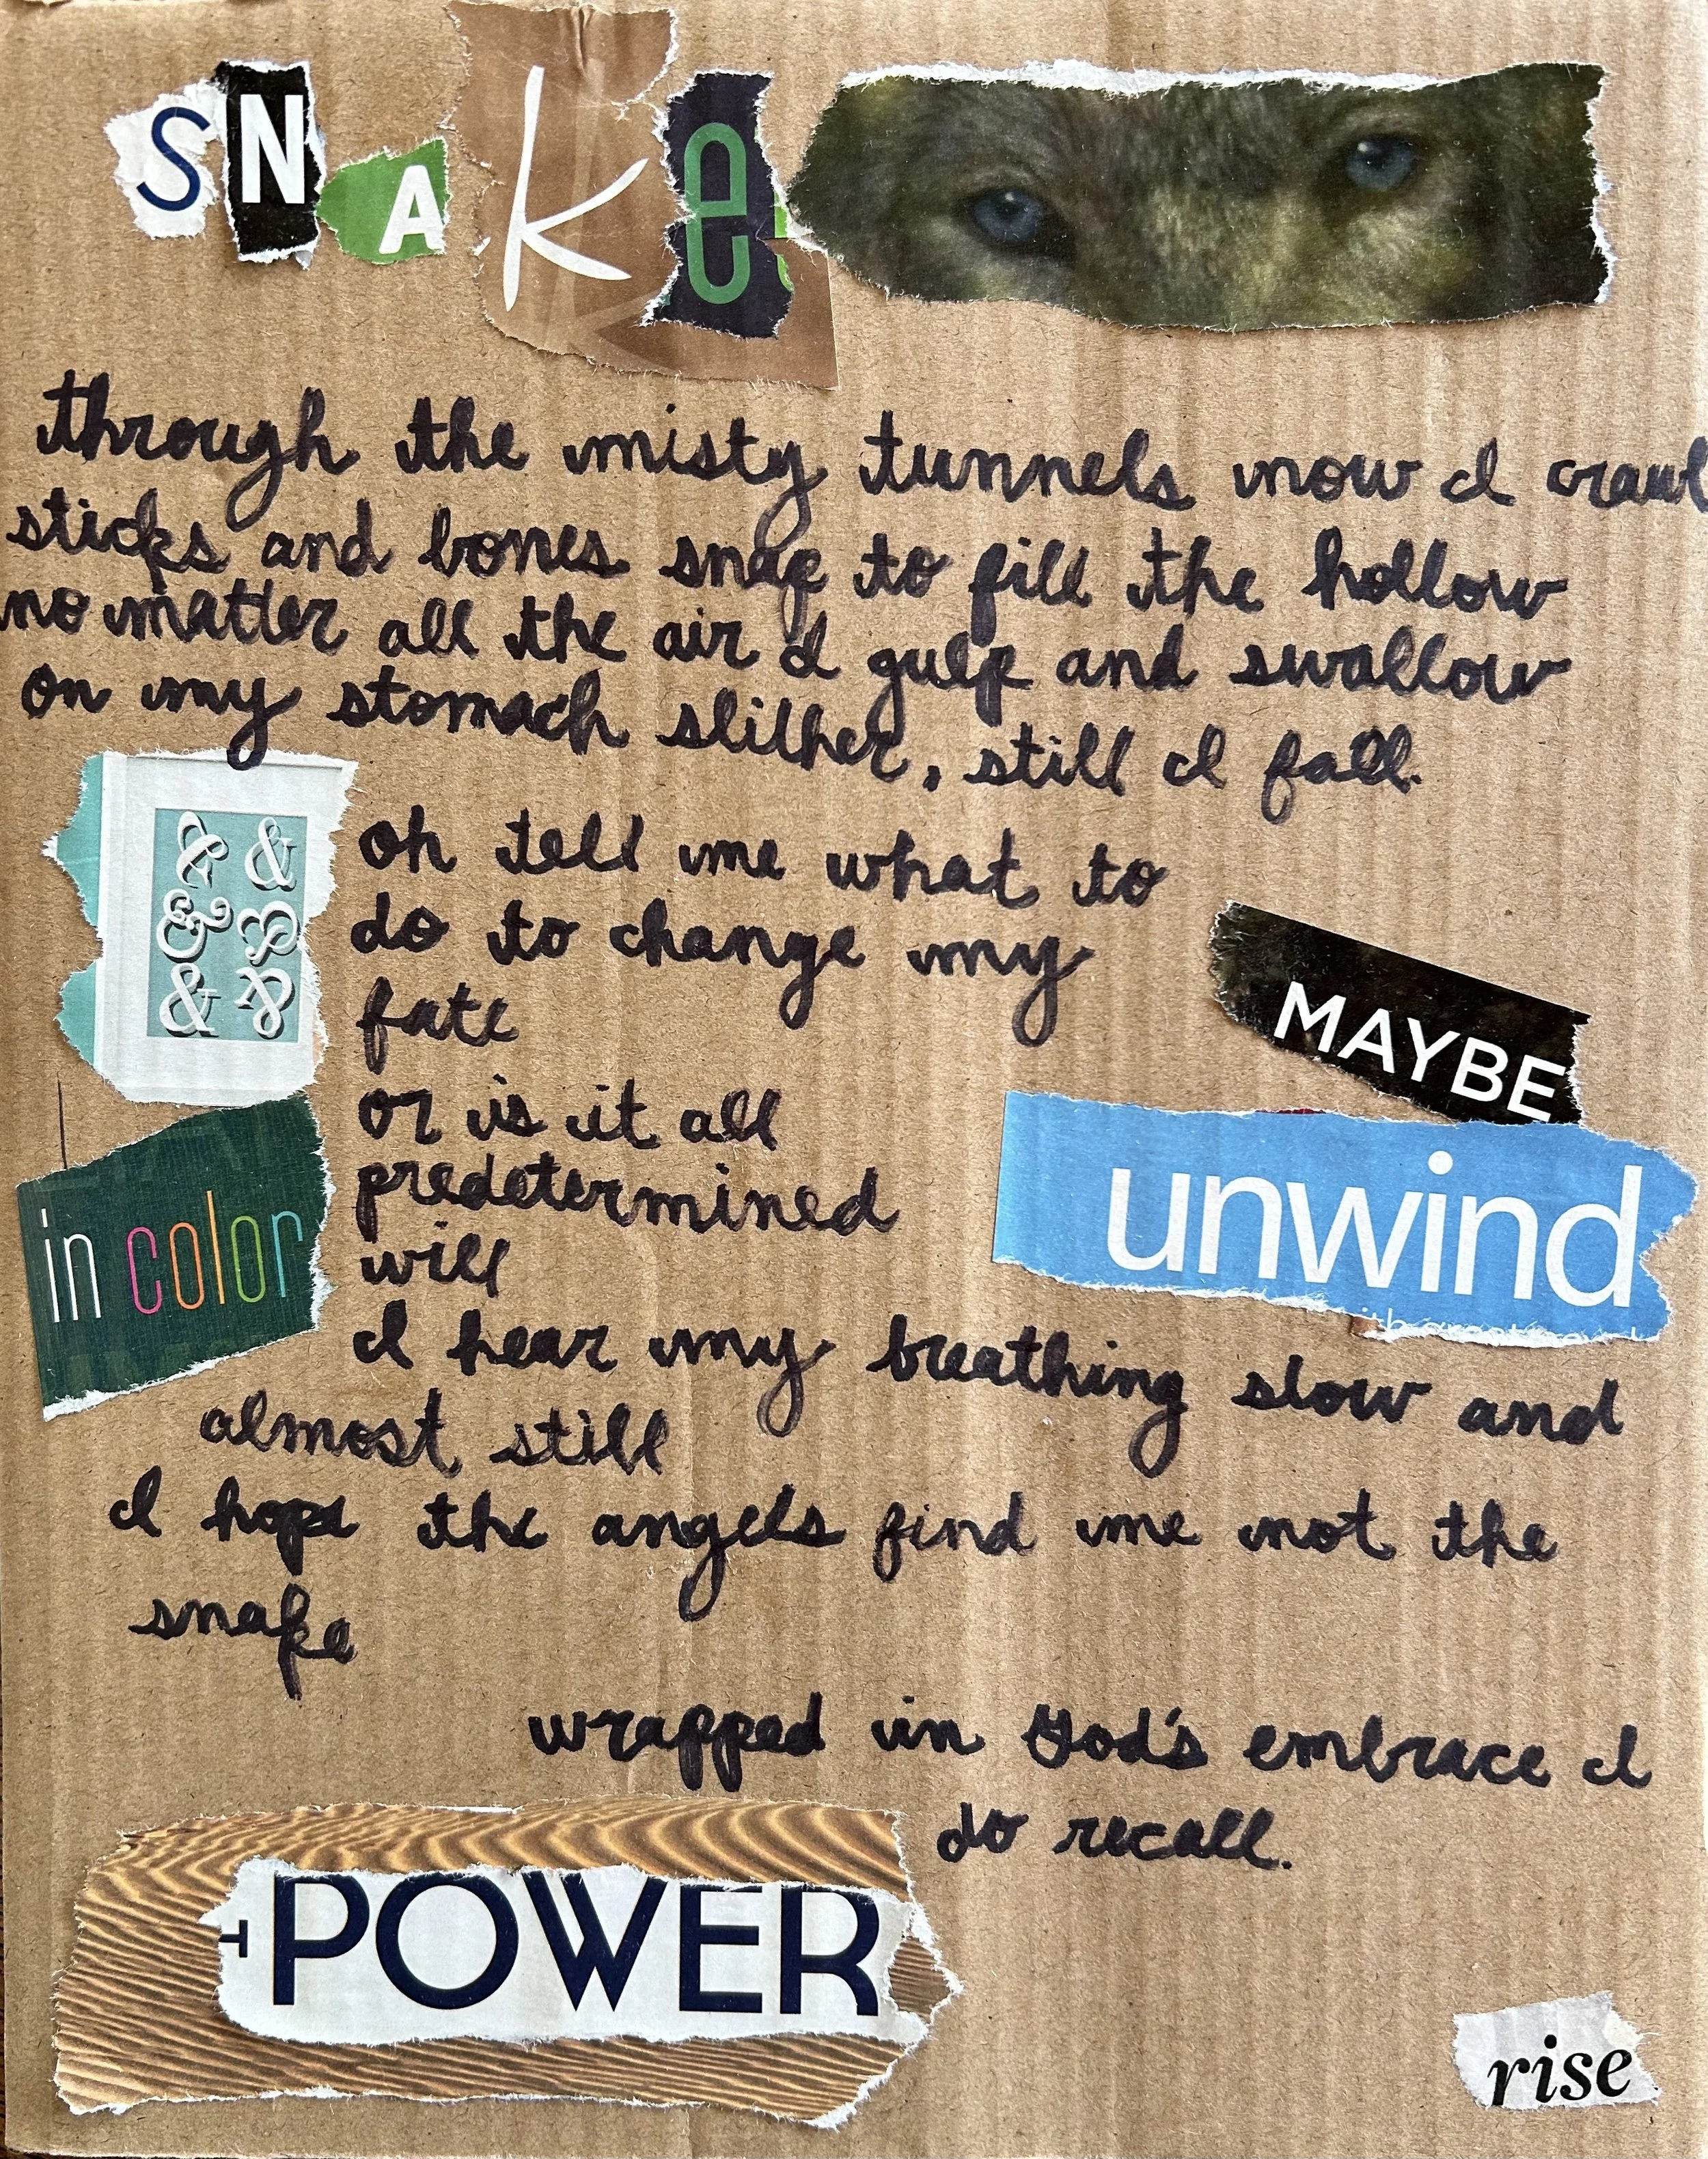 SNAke
through the misty tunnels now I crawl
sticks and bones snap to fill the hollow
no matter all the air I gulp and swallow
on my stomach slither, still I fall.
& &
& &
& &
oh tell me what to
do to change my
fate
MAYBE
or is it all
predetermined
will
unwind
in color
I hear my breathing slow and
almost still
I hope the angels find me not the
snake
wrapped in God's embrace I
do recall.
POWER
rise